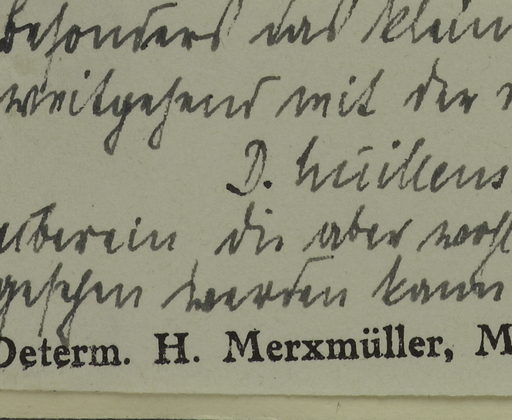 besonders das klein
weitgehend mit der
D. huillens
überein die aber wohl
gesehen werden kann
Determ. H. Merxmüller, M